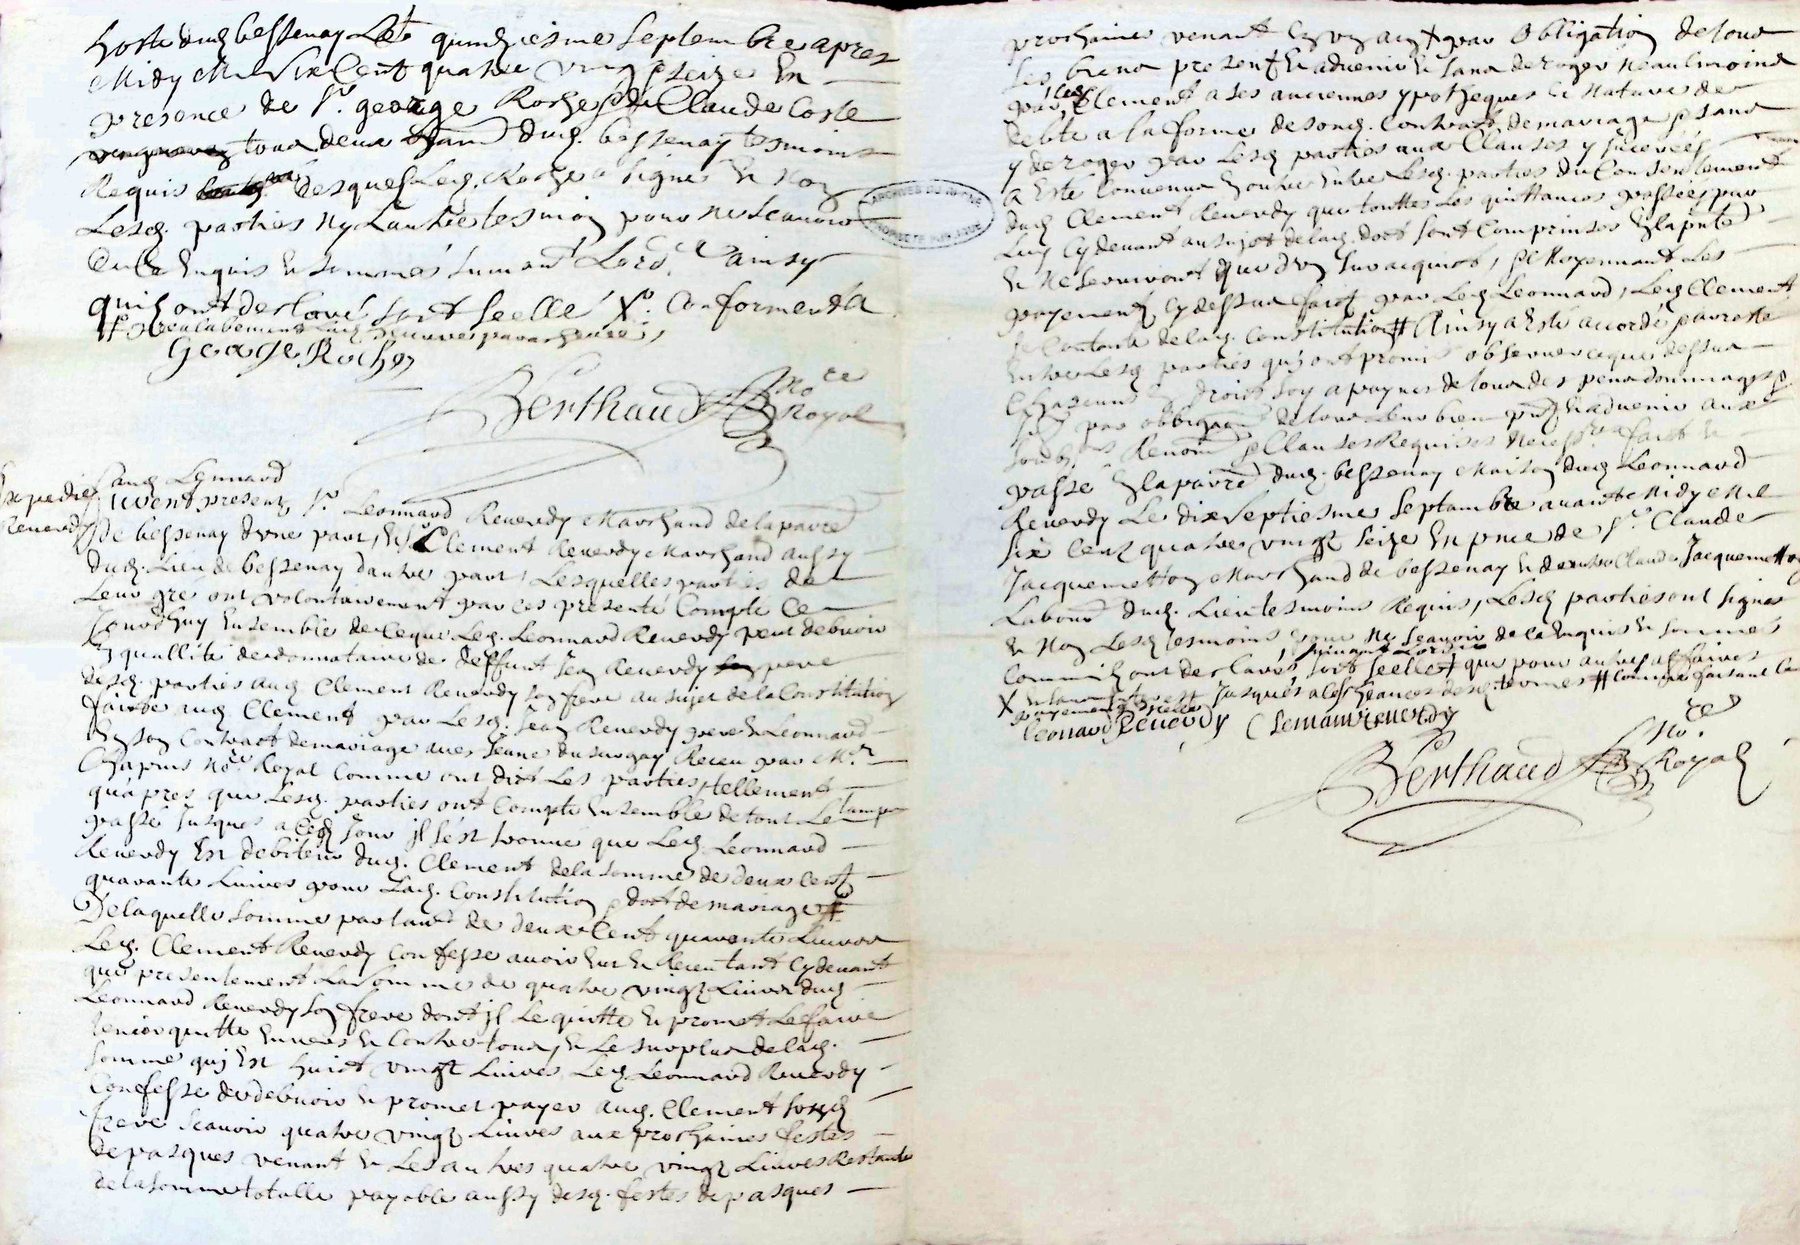 hoste dud. bessenay Le quinziesme septembre apres
Midy Mil Six Cent quatre vingt seize En
presence de Sr. george Rocher & de Claude Coste
tous deux dud. bessenay tesmoins
Requis desquels Led. Rocher a signé & Non
Lesd. parties Ny Lautre tesmoin pour ne scauoir
de ce Enquis & sommés suiuant Lord.ce ainsy
quils ont desclaré soit scellé Xo. Conformement a
prealablement
George Rocher
Berthaud Nore
Royal
Expedié aud. Leonnard
Reuerdy
furent presents Sr. Leonnard Reuerdy Marchand de la parre
de bessenay dune part, & Sr Clement Reuerdy Marchand aussy
dud. Lieu de bessenay dautre part, Lesquelles parties de
Leur gre ont volontairement par ces presente Compté Ce
Jourdhuy Ensemble de Ceque Led. Leonnard Reuerdy peut debuoir
En quallité de donnataire de deffunt Jean Reuerdy pere
desd. parties aud. Clement Reuerdy son frere au sujet de la Constitution
faicte aud. Clement par Lesd. Jean Reuerdy pere & Leonnard
En son Contract de mariage auec Jeanne du surgay Receu par Mr.
Chapuis Nore. Royal Comme ont dict Les parties, tellement
quapres que Lesd. parties ont Compté Ensemble de tout Le temps
passé Jusques a Ced. Jour Il sest trouué que Led. Leonnard
Reuerdy Est debiteur dud. Clement de la somme de deux Cent
quarante Liures pour Lad. Constitution & dot de mariage #
De laquelle somme partant de deux Cent quarante Liures
Led. Clement Reuerdy Confesse auoir Eu & Receu tant Cy deuant
que presentement La somme de quatre vingt Liures dud.
Leonnard Reuerdy son frere dont Il Le quitte & promet Le faire
tenir quitte Enuers & Contre tous, & Le surplus de lad.
somme qui Est huict vingt Liures Led. Leonnard Reuerdy
Confesse de debuoir & promet payer aud. Clement sond.
frere scauoir quatre vingt Liures aux prochaines festes
de pasques venant & Les autres quatre vingt Liures Restante
de la somme totalle payable aussy desd. festes de pasques
prochaines venant En vn an X par obligation de tous
ses biens present & aduenir & sans deroger Neaulmoins
par led. Clement a ses anciennes ypotheques & Nature de
debte a la forme de sond. Contract de mariage & sans
y deroger par Lesd. parties aux Clauses y Inserées
a Esté Conuenu En outre Entre Lesd. parties du Consentement
dud. Clement Reuerdy que touttes Les quittances passées par
Luy Cy deuant au sujet de lad. dot sont Comprinses En la pnte
& Ne seruiront que dun seul acquict, & Moyennant Les
payements Cy dessus faicts par Led. Leonnard, Led. Clement
se Contente de lad. Constitution # Ainsy a Esté accordé & arresté
Entre Lesd. parties qui ont promis obseruer ceque dessus
Chascun En droict soy a paynes de tous des pens dommages &
par obligation de tous Leur bien pnt & aduenir aux
Renon & Clauses Requises Necessres faict &
passé En la parre dud. bessenay Maison dud. Leonnard
Reuerdy Le dix Septiesme Septambre auant Midy Mil
Six Cent quatre vingt Seize En pnce de Sr. Claude
Jacquemetton Marchand de bessenay & de autre Claude Jacquemetton
Labour dud. Lieu tesmoins Requis, Lesd. parties ont signés
& Non Lesd. tesmoins pour Ne scauoir de ce Enquis & sommés
suiuant Lordce
Comm ils ont desclaré, soit scellé que pour autres affaires
X Jusques a lescheances desd. termes # Comme faisant
payements
Leonard Reuerdy Clemant reuerdy
Berthaud Nore
Royal
ARCHIVES DU RHÔNE
PROPRIÉTÉ PUBLIQUE